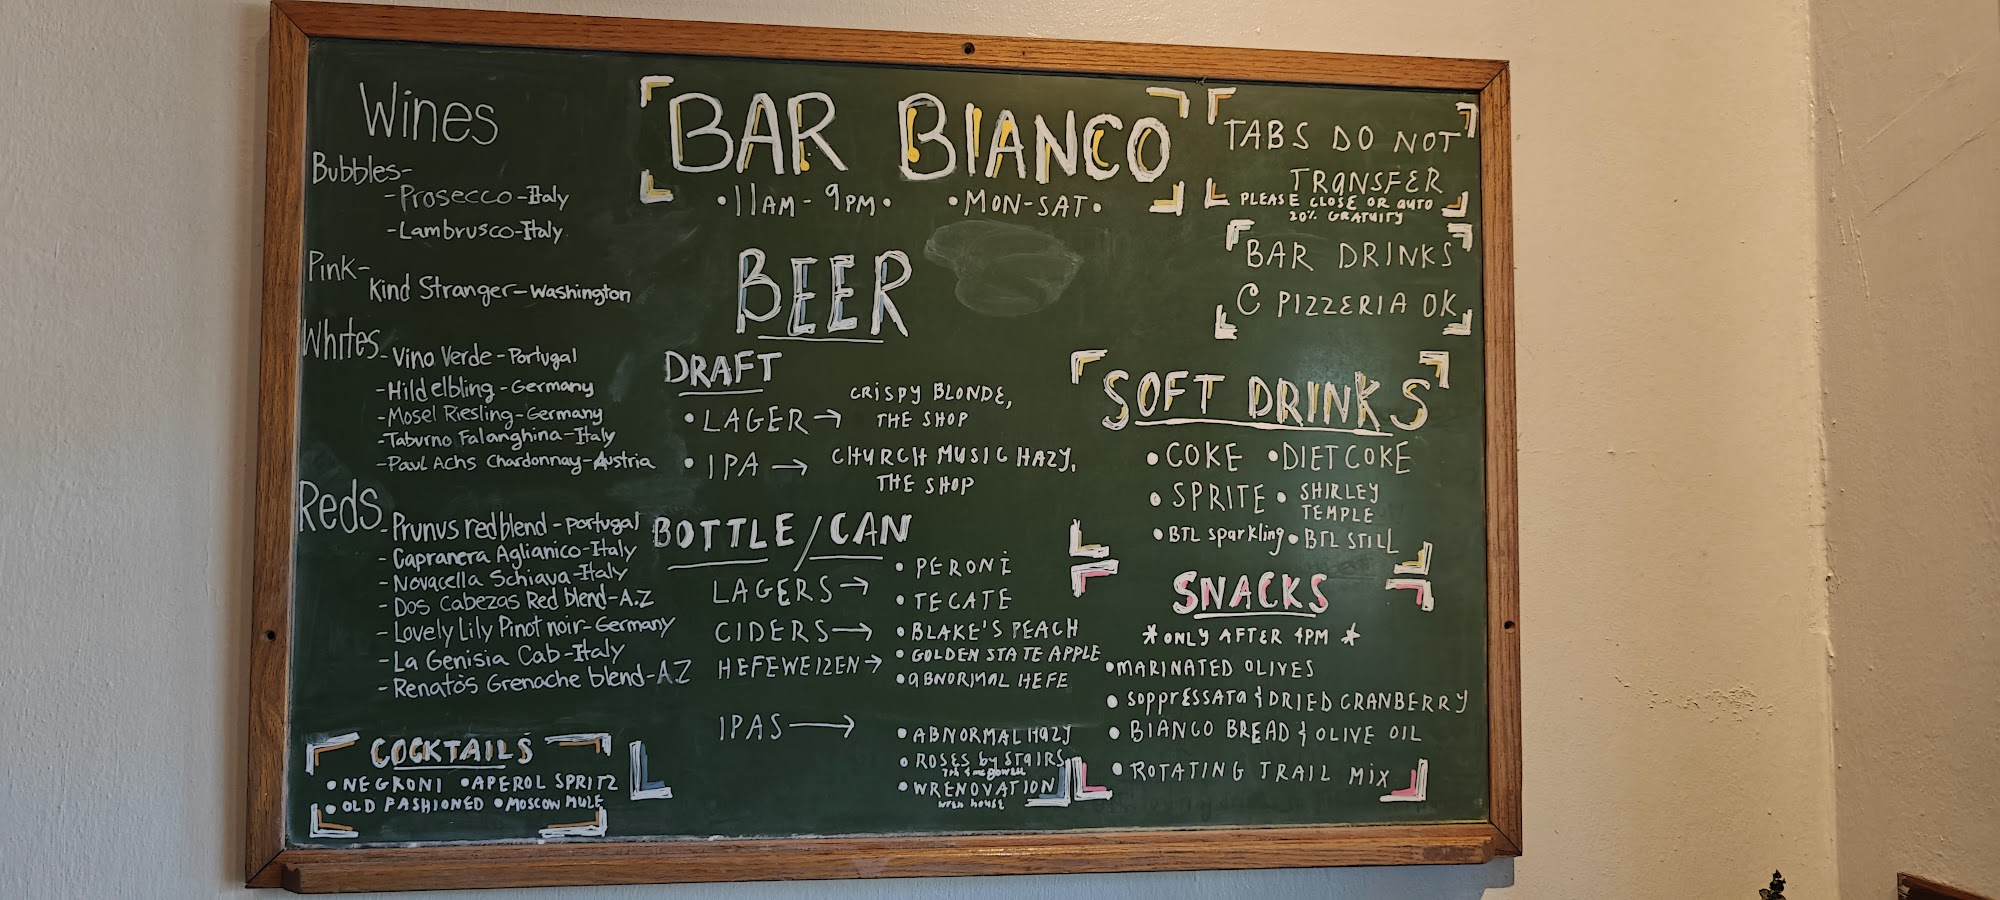 Wines
Bubbles-
-Prosecco-Italy
-Lambrusco-Italy
Pink-
Kind Stranger-Washington
Whites
-Vino Verde-Portugal
-Hild elbling-Germany
-Mosel Riesling-Germany
-Taburno Falanghina-Italy
-Paul Achs Chardonnay-Austria
Reds
-Prunus red blend-Portugal
-Capranera Aglianico-Italy
-Novacella Schiava-Italy
-Dos Cabezas Red blend-A.Z
-Lovely Lily Pinot noir-Germany
-La Genisia Cab-Italy
-Renato's Grenache blend-A.Z
COCKTAILS
•NEGRONI •APEROL SPRITZ
•OLD FASHIONED •MOSCOW MULE
BAR BIANCO
•11AM-9PM• •MON-SAT•
BEER
DRAFT
•LAGER→ CRISPY BLONDE,
THE SHOP
•IPA→ CHURCH MUSIC HAZY,
THE SHOP
BOTTLE/CAN
LAGERS→ •PERONI
•TECATE
CIDERS→ •BLAKE'S PEACH
•GOLDEN STATE APPLE
HEFEWEIZEN→ •ABNORMAL HEFE
IPAS→ •ABNORMAL HAZY
•ROSES by STAIRS
•WRENOVATION
wren house
TABS DO NOT
TRANSFER
PLEASE CLOSE OR AUTO
20% GRATUITY
BAR DRINKS
C PIZZERIA OK
SOFT DRINKS
•COKE •DIET COKE
•SPRITE •SHIRLEY
TEMPLE
•BTL sparkling •BTL STILL
SNACKS
*ONLY AFTER 4PM*
•MARINATED OLIVES
•SOPPRESSATA & DRIED CRANBERRY
•BIANCO BREAD & OLIVE OIL
•ROTATING TRAIL MIX